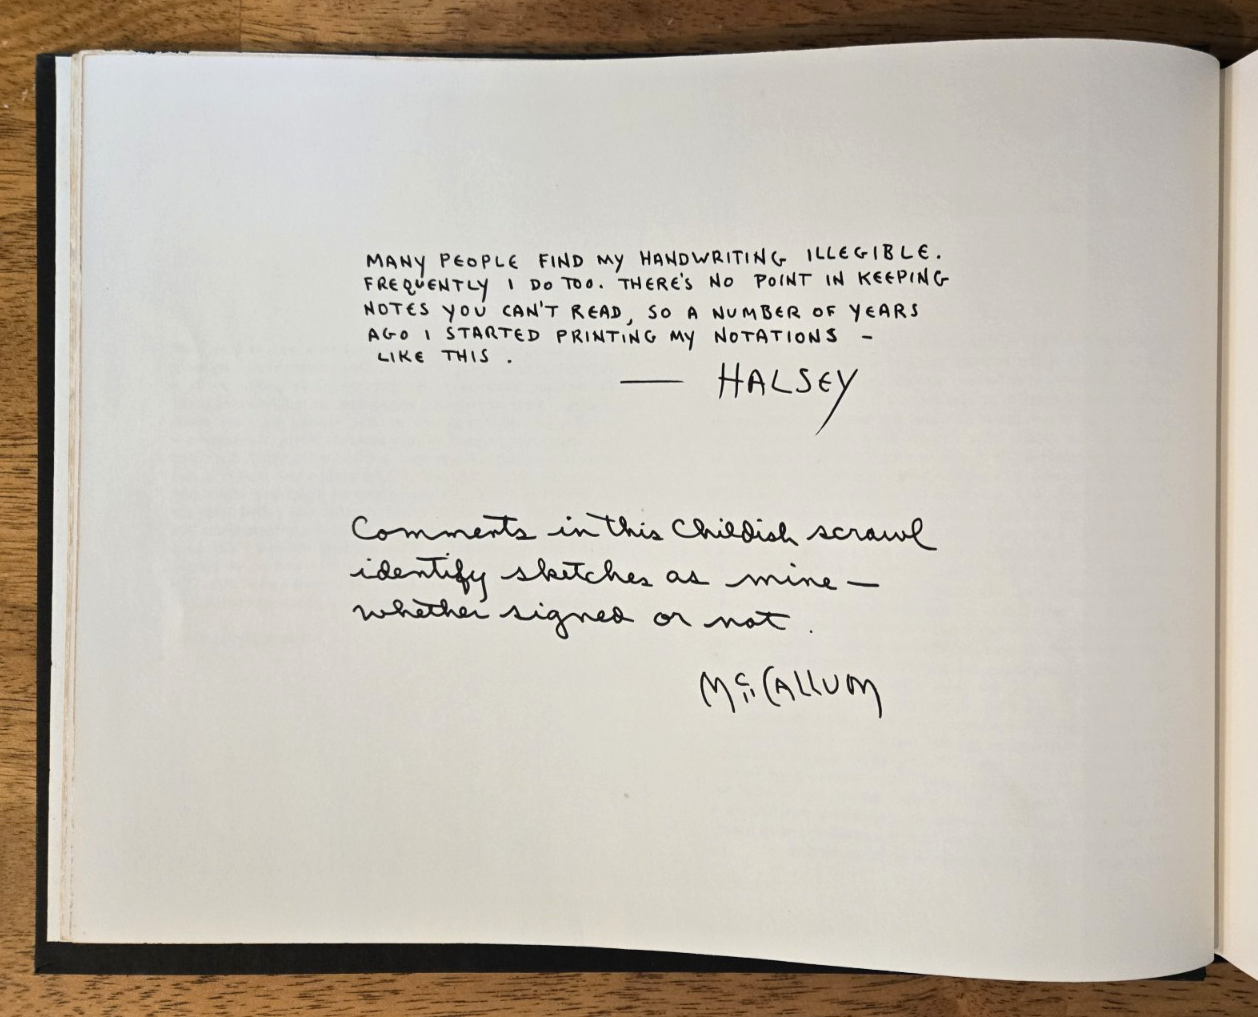 MANY PEOPLE FIND MY HANDWRITING ILLEGIBLE.
FREQUENTLY I DO TOO. THERE'S NO POINT IN KEEPING
NOTES YOU CAN'T READ, SO A NUMBER OF YEARS
AGO I STARTED PRINTING MY NOTATIONS –
LIKE THIS.
— HALSEY
Comments in this Childish scrawl
identify sketches as mine —
whether signed or not.
McCALLUM